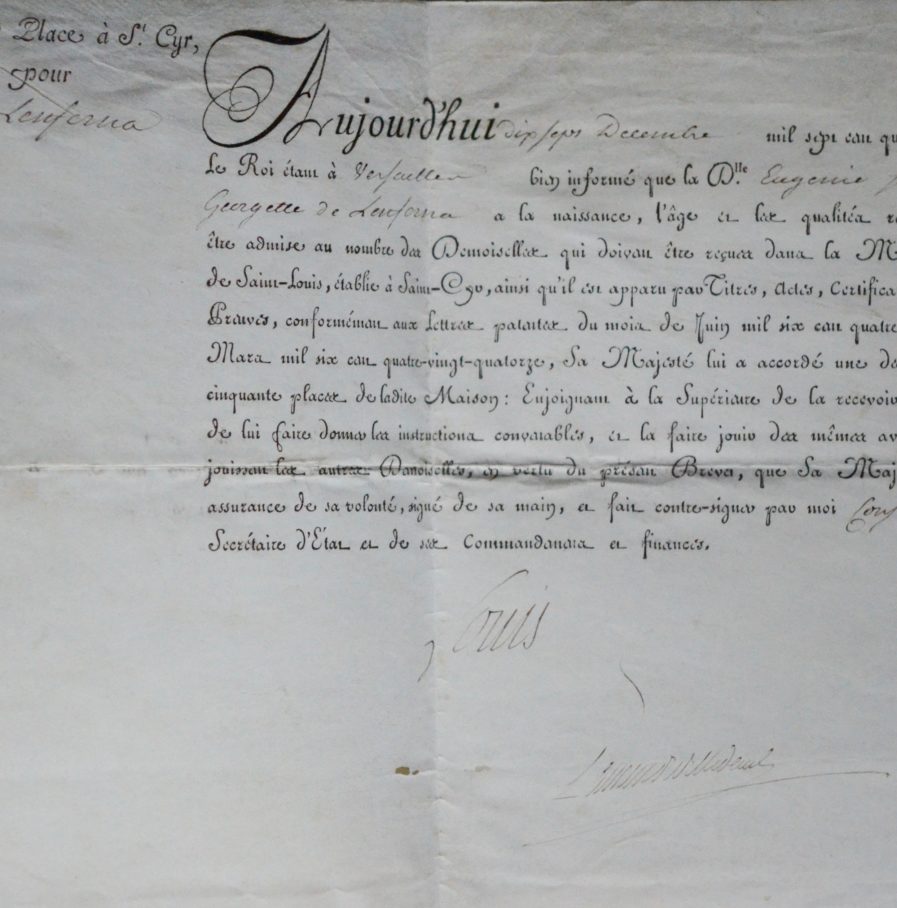 Place à S.t Cyr,
pour
Lenferna
Aujourd'hui dix sept Decembre mil sept cen qu
Le Roi étant à Versailles bien informé que la D.lle Eugenie
Georgette de Lenferna a la naissance, l'âge et les qualités re
être admise au nombre des Demoiselles qui doivent être reçues dans la M
de Saint-Louis, établie à Saint-Cyr, ainsi qu'il est apparu par Titres, Actes, Certifica
Preuves, conformément aux Lettres patentes du mois de Juin mil six cen quatre
Mars mil six cen quatre-vingt-quatorze, Sa Majesté lui a accordé une de
cinquante places de ladite Maison: Enjoignant à la Supérieure de la recevoir
de lui faire donner les instructions convenables, et la faire jouir des mêmes av
jouissent les autres Demoiselles, en vertu du présent Brevet, que Sa Maj
assurance de sa volonté, signé de sa main, et fait contre-signer par moi
Secrétaire d'État et de ses Commandements et finances.
Louis